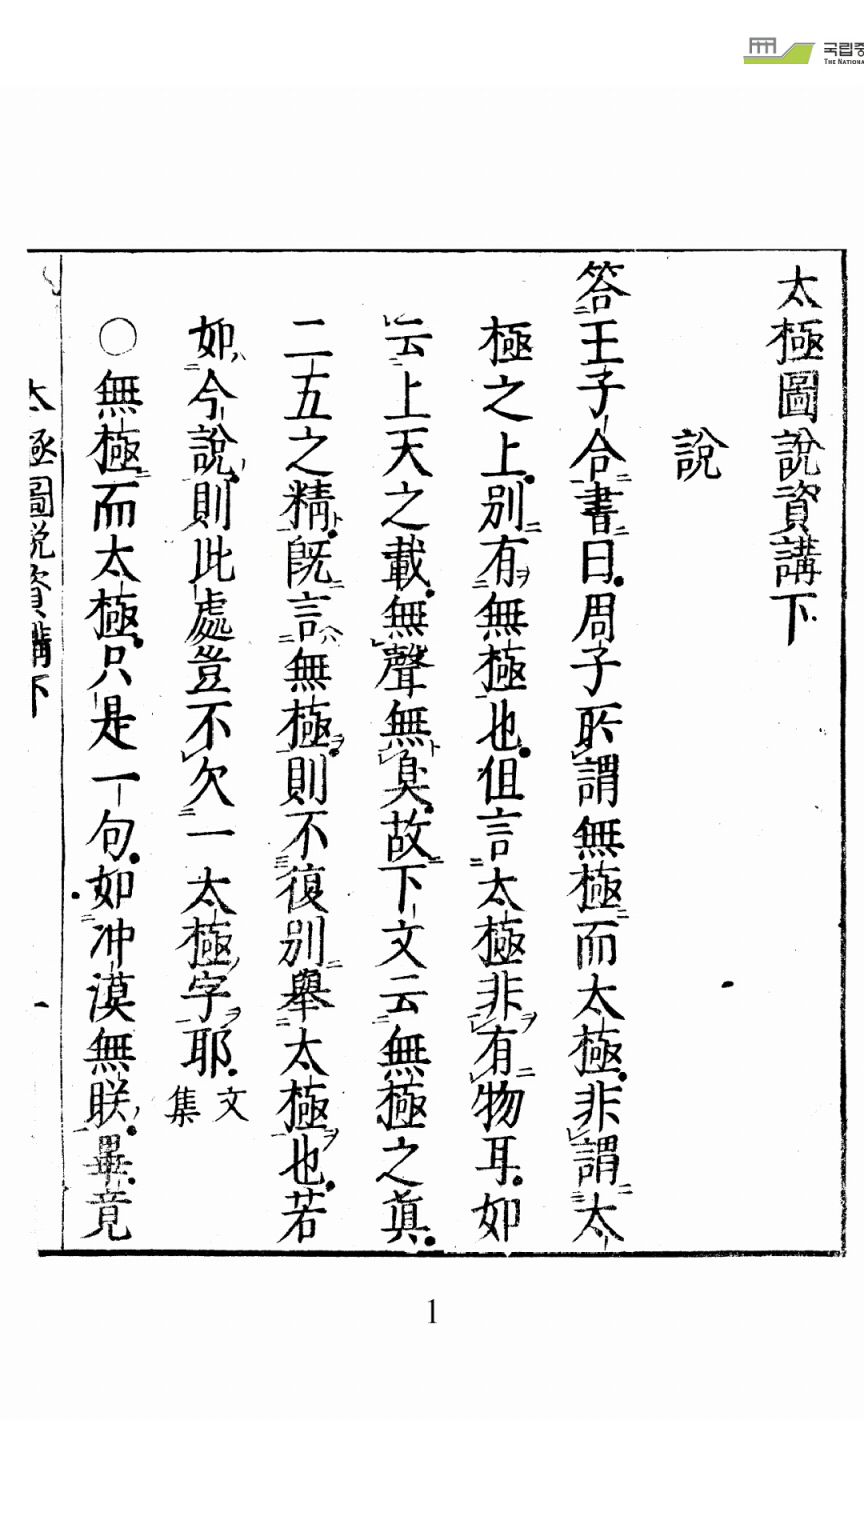 국립중
THE NATIONA
太極圖說資講下
說
答王子合書曰周子所謂無極而太極非謂太
極之上別有無極也但言太極非有物耳如
云上天之載無聲無臭故下文云無極之眞
二五之精旣言無極則不復別舉太極也若
如今說則此處豈不欠一太極字耶 文集
○無極而太極只是一句如冲漠無朕畢竟
太極圖說資講下
一
1